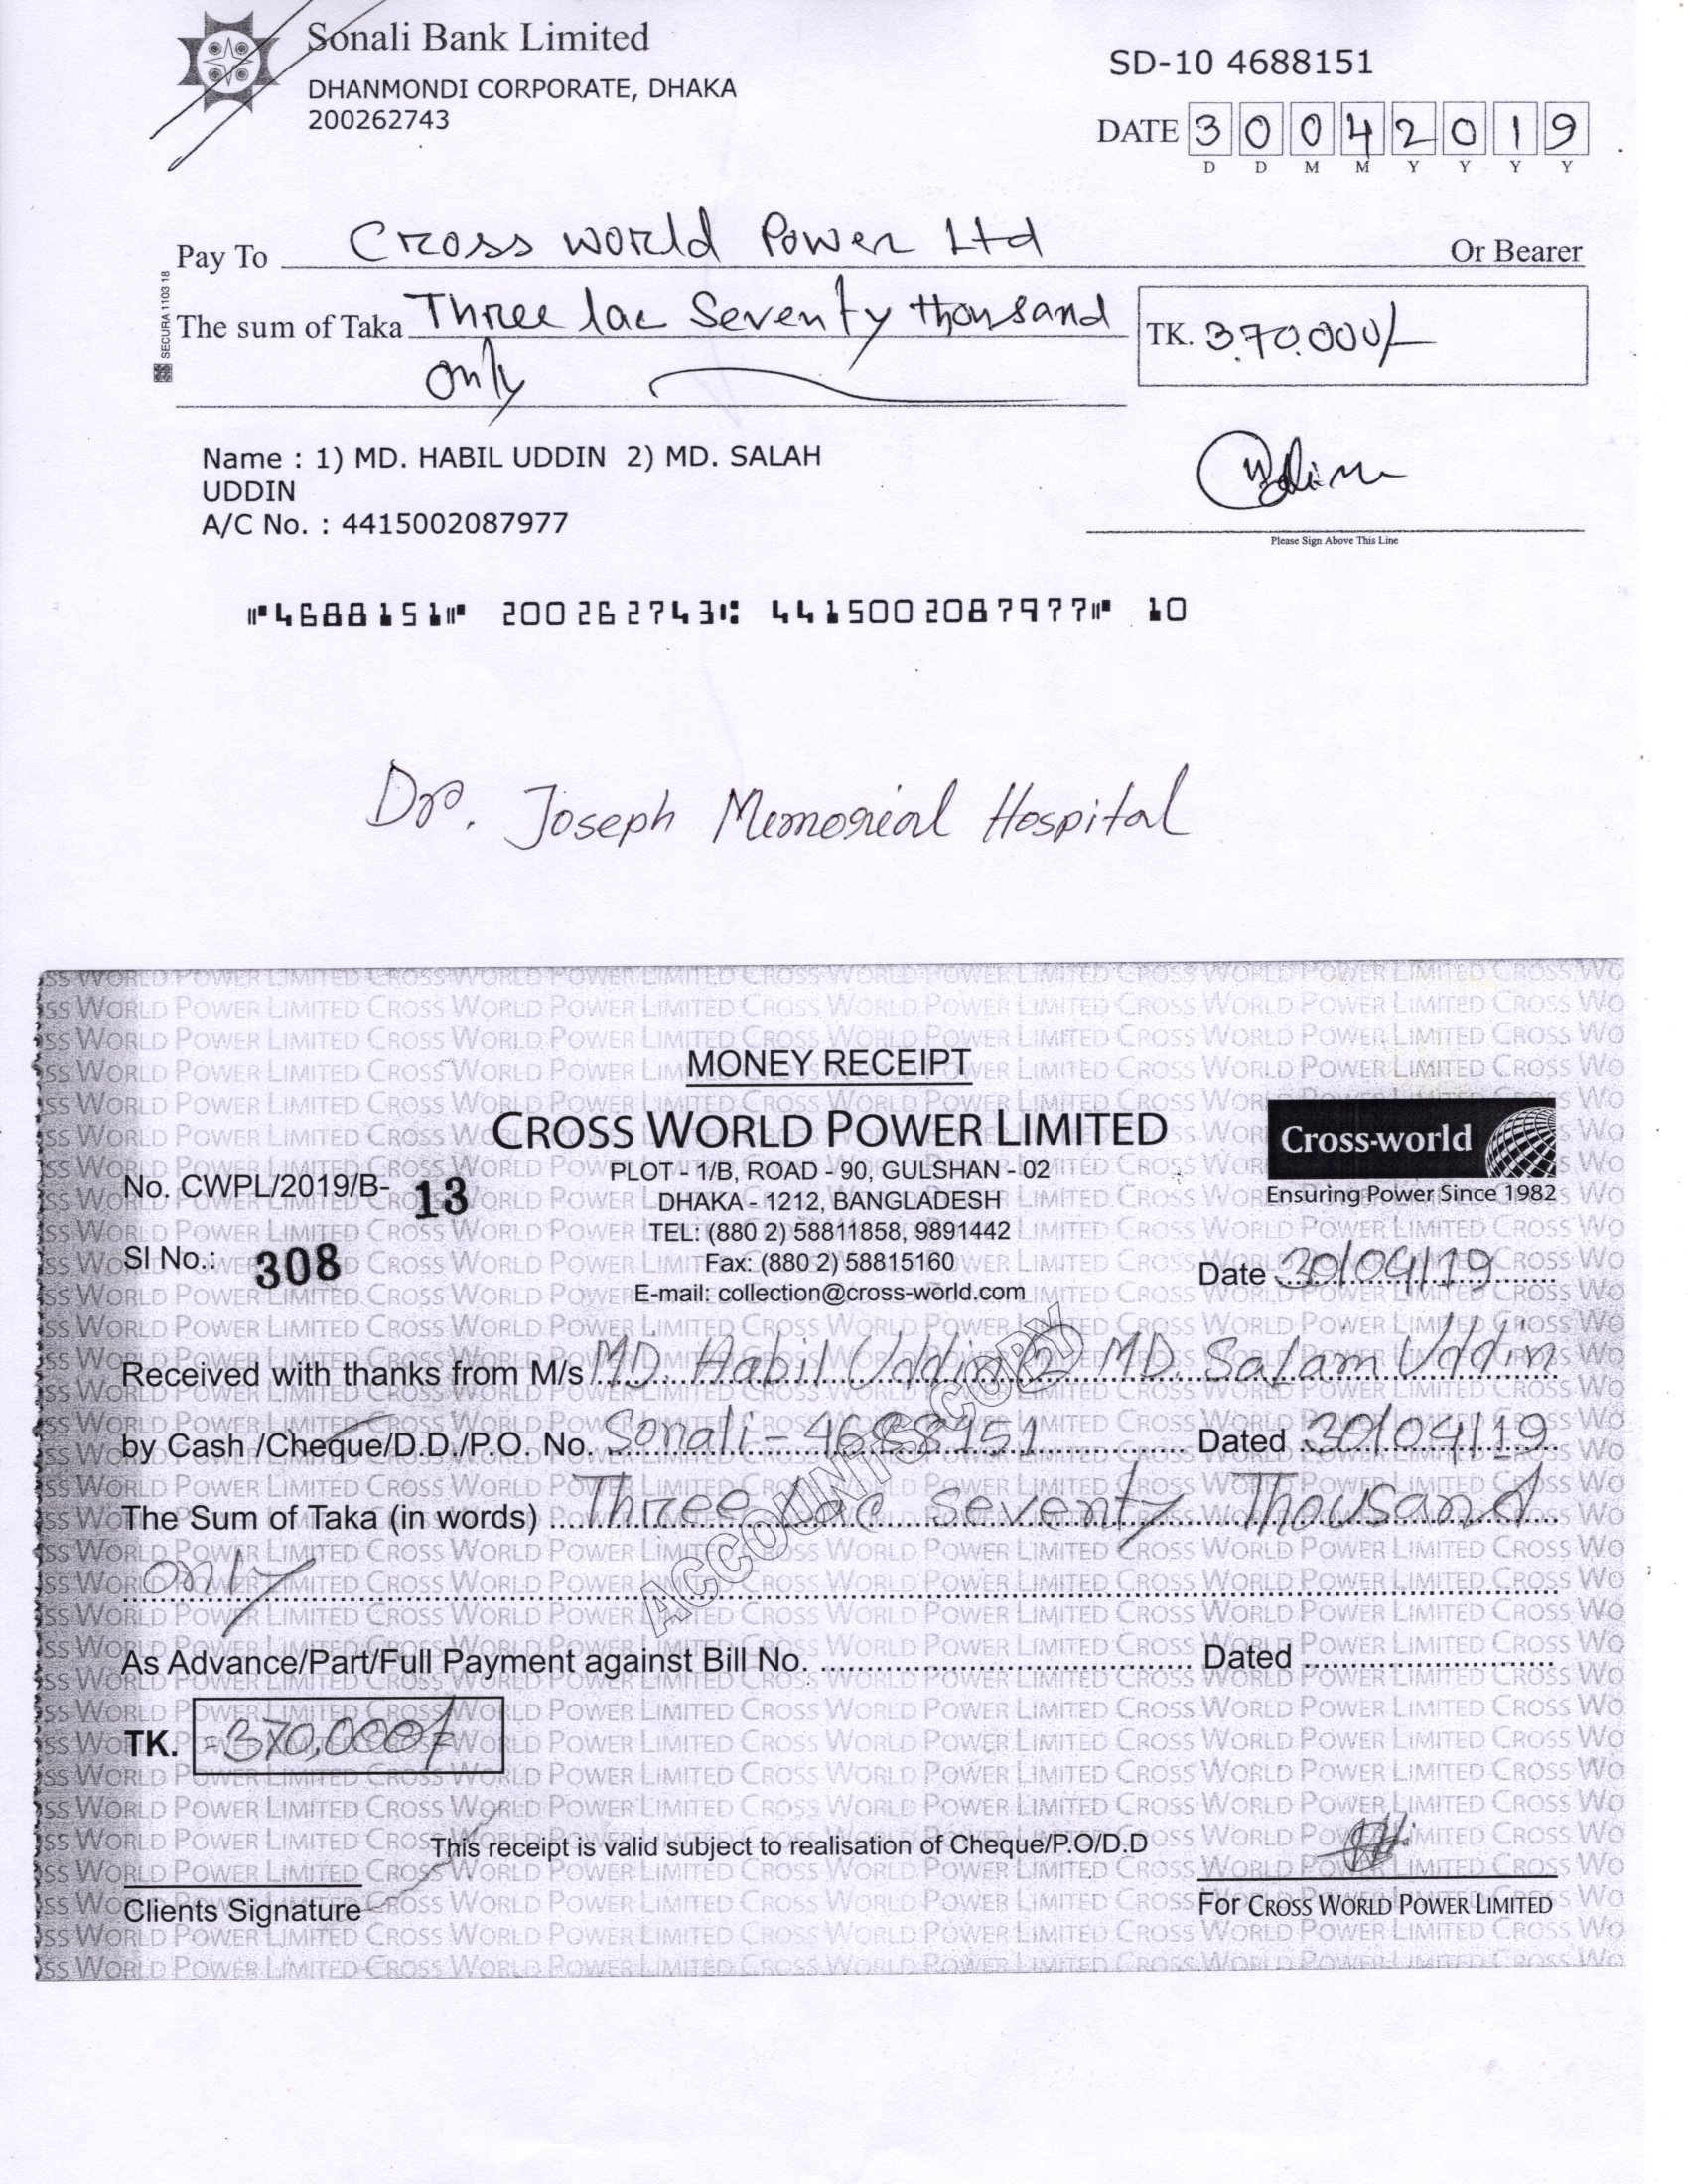 Sonali Bank Limited
DHANMONDI CORPORATE, DHAKA
200262743
SD-10 4688151
DATE 3 0 0 4 2 0 1 9
D D M M Y Y Y Y
Pay To Cross world Power Ltd Or Bearer
The sum of Taka Three lac Seventy thousand
TK. 3,70,000/-
only
SECURA 1103 18
Name : 1) MD. HABIL UDDIN 2) MD. SALAH
UDDIN
A/C No. : 4415002087977
Please Sign Above This Line
⑈4688151⑈ 200262743⑆ 4415002087977⑈ 10
Dr. Joseph Memorial Hospital
MONEY RECEIPT
CROSS WORLD POWER LIMITED
PLOT - 1/B, ROAD - 90, GULSHAN - 02
DHAKA - 1212, BANGLADESH
TEL: (880 2) 58811858, 9891442
Fax: (880 2) 58815160
E-mail: collection@cross-world.com
Cross-world
Ensuring Power Since 1982
No. CWPL/2019/B- 13
Sl No.: 308
Date 30/04/19
Received with thanks from M/s MD. Habil Uddin & MD. Salam Uddin
by Cash /Cheque/D.D./P.O. No. Sonali - 4688151 Dated 30/04/19
The Sum of Taka (in words) Three Lac Seventy Thousand
only
ACCOUNTS COPY
As Advance/Part/Full Payment against Bill No. Dated
TK. =370,000/=
This receipt is valid subject to realisation of Cheque/P.O/D.D
Clients Signature
For CROSS WORLD POWER LIMITED